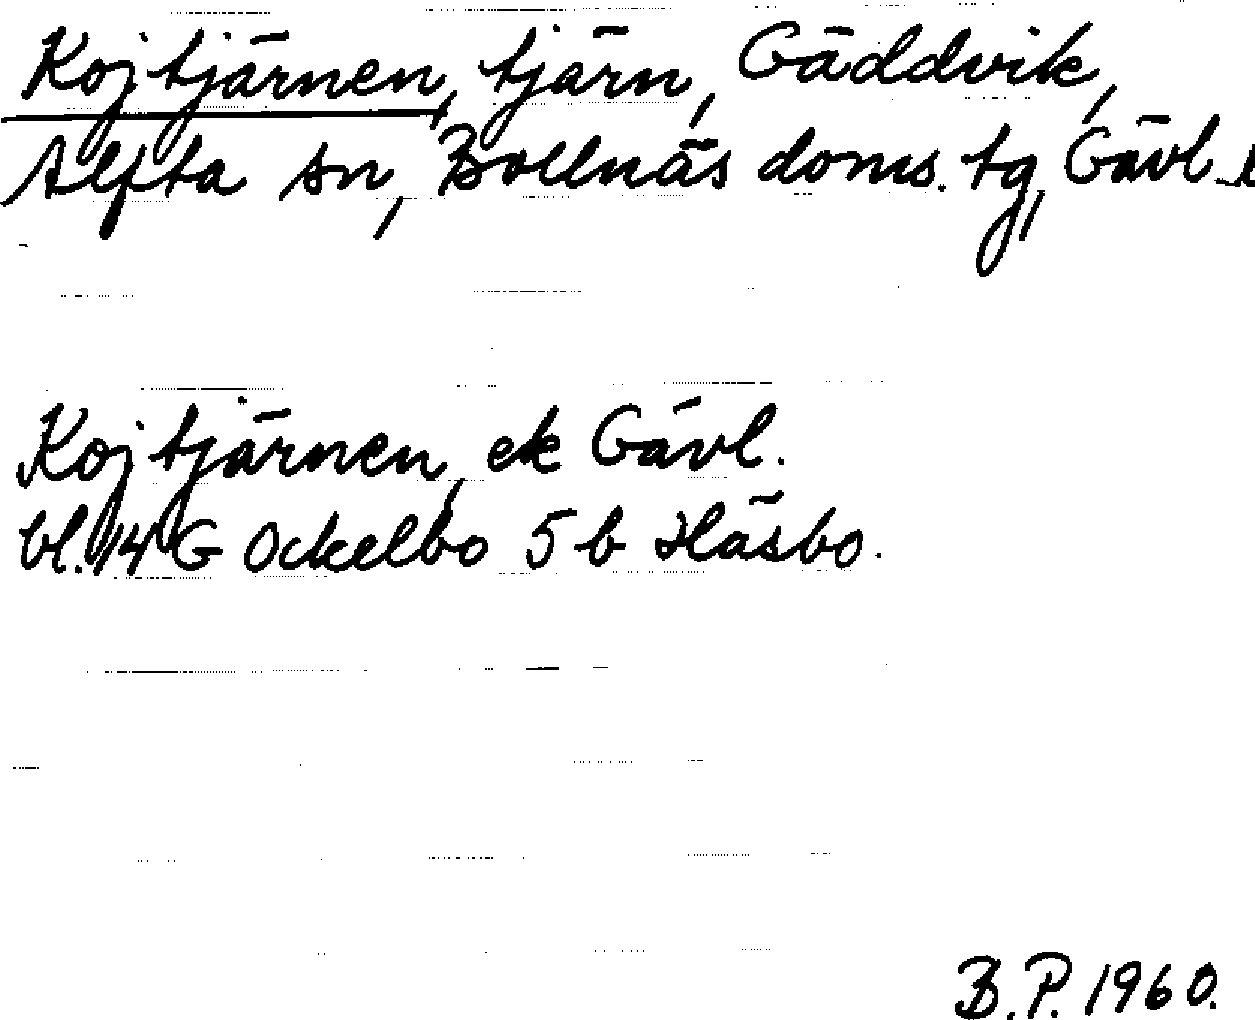 Kojtjärnen, tjärn, Gäddvik,
Alfta sn, Bollnäs doms. tg, Gävl. l
Kojtjärnen, ek Gävl.
bl. 14 G Ockelbo 5 b Häsbo.
B.P. 1960.